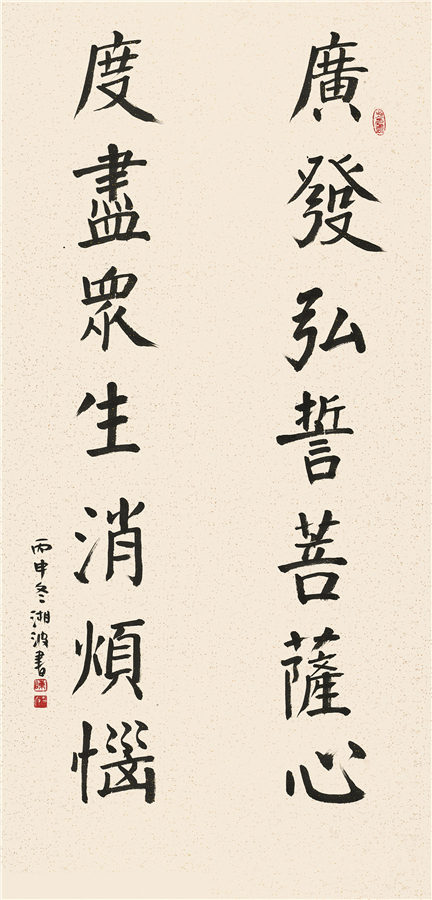 廣發弘誓菩薩心
度盡眾生消煩惱
丙申冬湘波書